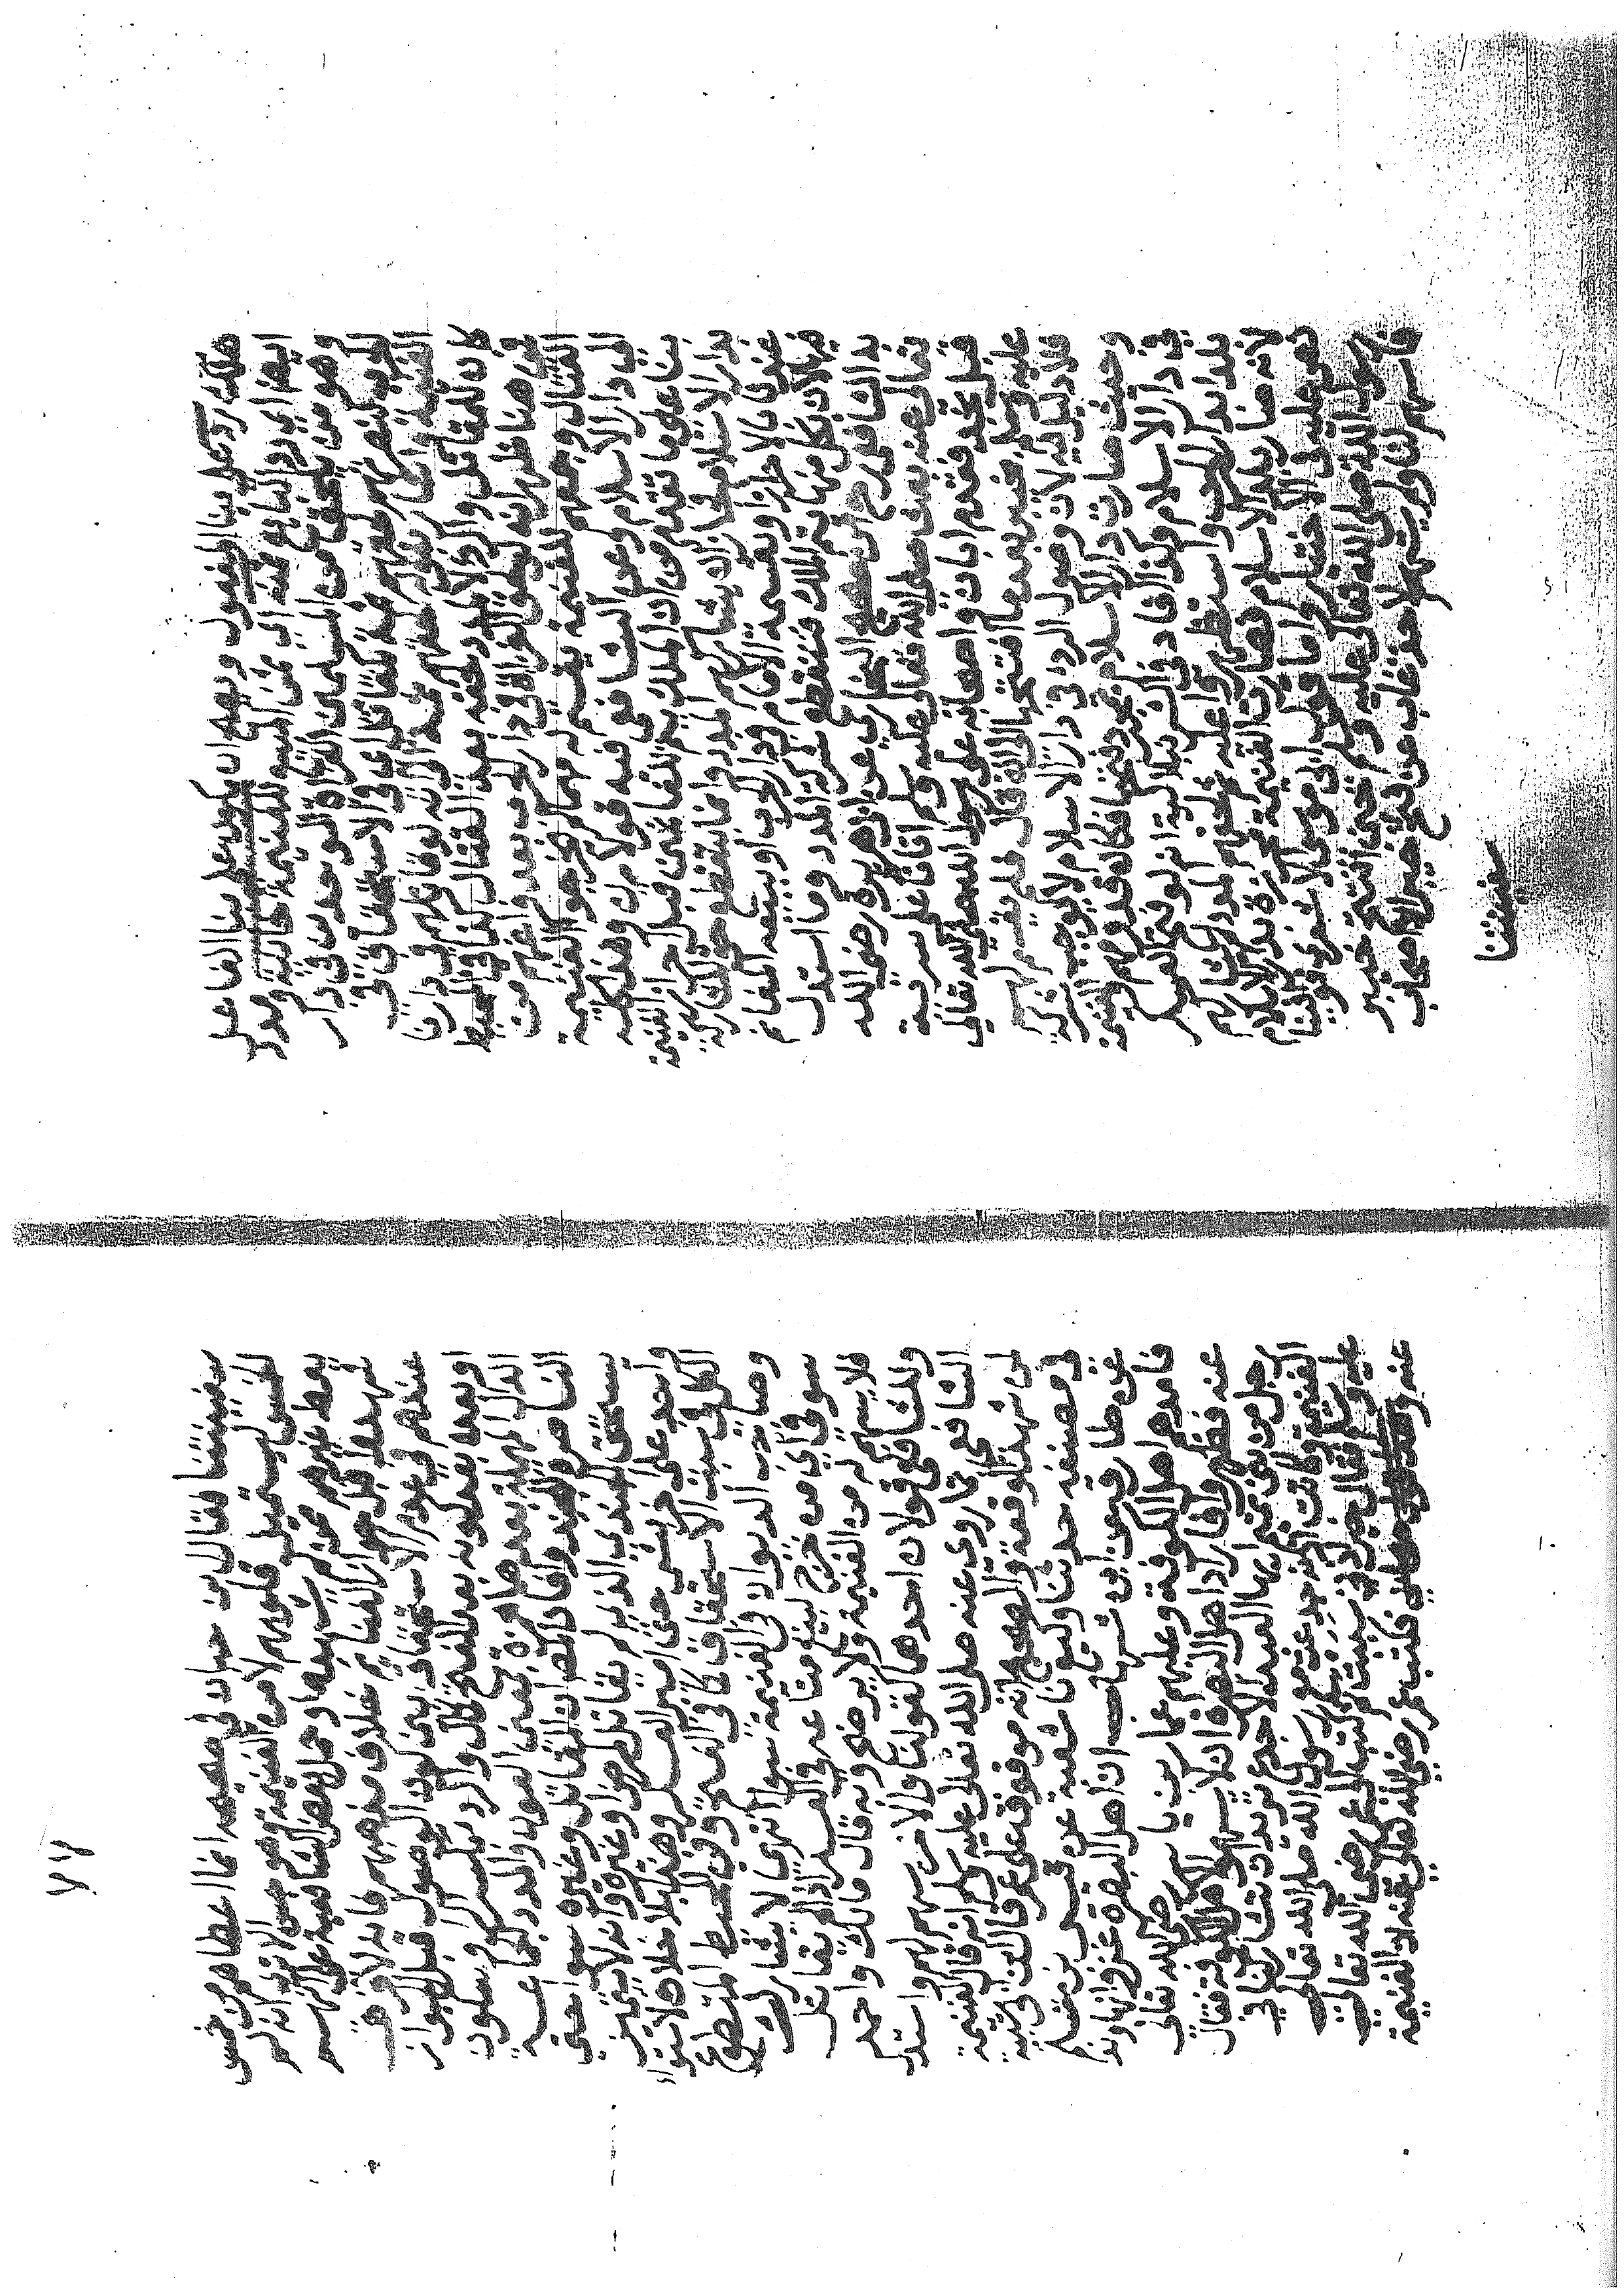 هلكه ردء على بناء المفعول وبعد ان يكون على بناء الفاعل
ايضا اي رد لتابعه عنه اي عن العدو للغنيمة حالية ومدد
وهو من يلحق من المسلمين الغزاة الموحدين في دار
الحرب لنصرتهم لحقهم ثمة كمقاتل اي في الاستحقاق في
الغنيمة وانما ثمة لانه لو قاتلهم في دارنا
كان للمقاتل والردأ لا لمدد لحقه بعد القتال كذا في المحيط
ومن هنا ظهر انه لو لحق الغزاة في دار الحرب بعد فراغهم من
القتال وجمعهم للغنيمة يقسم له معهم قبل ان يخرجوا الغنيمة
الى دار الاسلام وعن الشافعي فيه قولان وهذا كله
بنا على ما تقدم من ان الملك يتم للغانمين قبل احراز الغنيمة
بدار الاسلام فجاز ان يشاركهم المدد وانما ينقطع حق المشاركة
عندنا بالاحراز او بقسمة الامام في دار الحرب او ببيعه المغانم
فيها لان بكل منها يتم الملك فينقطع شركة المدد وما استدل
به الشافعي رح في صحيح البخاري عن ابي هريرة رضي الله
تعالى عنه بعث صلى الله تعالى عليه وسلم ابانا على سرية
قبل نجد فقدم ابان واصحابه على رسول الله صلى الله تعالى
عليه وسلم بخيبر بعد ما افتتحها الى ان قال فلم يقسم لهم
فلا دليل فيه لان وصول المدد في دار الاسلام لا يوجب شركة
وخيبر صارت دار الاسلام بمجرد فتحها فكان قدومهم والغنيمة
في دار الاسلام ولذا قال في البزازية انه لو فتح العسكر
بلدا بدار الحرب واستظهروا عليه ثم لحقهم المدد لم يشاركهم
لانه صار بلد الاسلام فصارت الغنيمة محرزة بدار الاسلام
نص عليه في الاختيار واما قول ابي موسى الاشعري فوافينا
رسول الله صلى الله تعالى عليه وسلم حين افتتح خيبر
فاسهم لنا ولم يسهم لاحد غاب عن فتح خيبر الا اصحاب
سفينتنا
٧٧
سفينتنا فقال بن حبان في صحيحه انما اعطاهم من خمس
الخمس ليستميل قلوبهم لا من الغنيمة وهو حسن الا ترى انه لم
يعط غيرهم ممن لم يشهدها وحمل بعض الشافعية على انهم
شهدوا قبل حوز الغنايم خلاف مذهبهم فانه لا فرق
عندهم في عدم الاستحقاق بين كون الوصول قبل الحوز
او بعده بعد كونه بعد الفتح وكل والرد بكسر الراء وسكون
الدال المهملة بعدها همزة بمعنى العون والمدد الجماعة
الناصرة للجند وافاد المصنف ان المقاتل وغيره سواء حتى
يستحق الجندي الذي لم يقاتل لمرض او غيره وانه لا يتميز
واحد على اخر بشيء حتى امير العسكر وهذا بلا خلاف لاستواء
الكل في سبب الاستحقاق كما في الفتح وفي المحيط المتطوع
وصاحب الديوان في الغنيمة سواء انتهى لا يشارك
سوقي اي من خرج لبيع متاعه في العسكر اذا لم يقاتل
فلا يسهم له من الغنيمة ولا يرضخ وبه قال مالك واحمد
وللشافعي قولان احدهما كقولنا والاخر يسهم لهم واستدل
الشافعي بما روي عنه صلى الله تعالى عليه وسلم انه قال الغنيمة
لمن شهد الوقعة والصحيح انه موقوف على عمر قال ابن ابي شيبة
في مصنفه حدثنا وكيع نا شعبة عن قيس بن مسلم
عن طارق بن شهاب ان اهل البصرة غزوا نهاوند
فامدهم اهل الكوفة وعليهم عمار بن ياسر رضي الله تعالى
عنه فظهروا فاراد اهل البصرة ان لا يسهموا لاهل الكوفة فقال
رجل من بني تميم ايها العبد الاجدع تريد ان تشاركنا في
الغنيمة وكانت اذنه جدعت مع رسول الله صلى الله تعالى
عليه وسلم فقال خير اذني سببت ثم كتب الى عمر رضي الله تعالى
عنه فكتب عمر رضي الله تعالى عنه ان الغنيمة